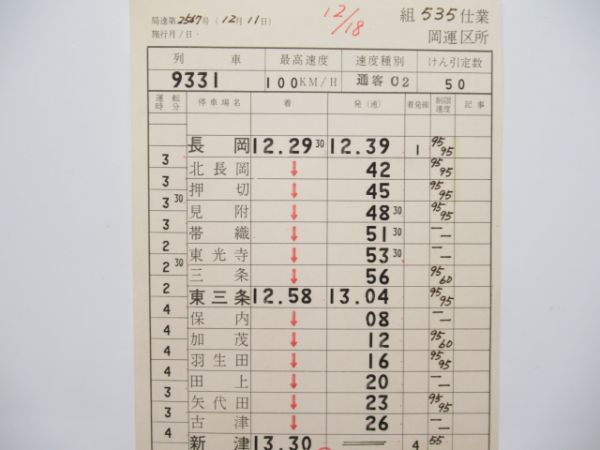 局達第2567号(12月11日) 12/18 組 535 仕業
施行月/日・ 岡運区所
列車 最高速度 速度種別 けん引定数
9331 100KM/H 通客C2 50
運転時分 停車場名 着 発(通) 着発線 制限速度 記事
長岡 12.29 30 12.39 1 95/95
3
北長岡 ↓ 42 95/95
3
押切 ↓ 45 95/95
3 30
見附 ↓ 48 30 95/95
3
帯織 ↓ 51 30 — —
2
東光寺 ↓ 53 30 — —
2 30
三条 ↓ 56 95/60
2
東三条 12.58 13.04 95/95
4
保内 ↓ 08 — —
4
加茂 ↓ 12 95/60
4
羽生田 ↓ 16 95/95
4
田上 ↓ 20 — —
3
矢代田 ↓ 23 95/95
3
古津 ↓ 26 — —
4
新津 13.30 ═ 4 55